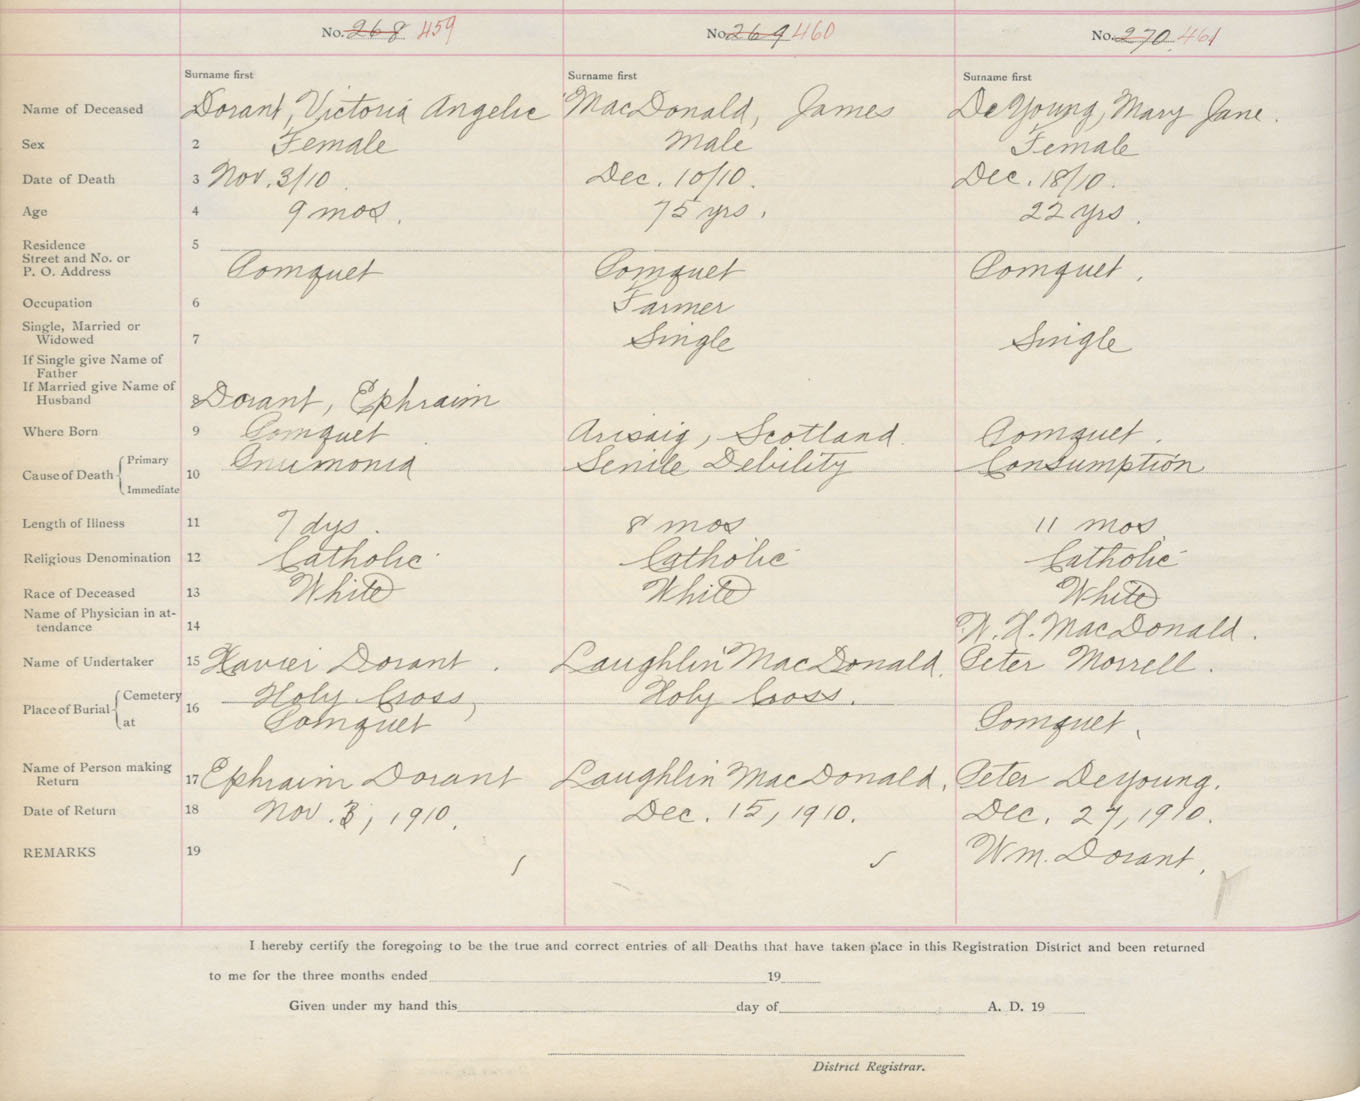 No. 268 459 No. 269 460 No. 270 461
Surname first Surname first Surname first
Name of Deceased Dorant, Victoria Angelic MacDonald, James DeYoung, Mary Jane.
Sex 2 Female Male Female
Date of Death 3 Nov. 3/10 Dec. 10/10. Dec. 18/10.
Age 4 9 mos. 75 yrs. 22 yrs.
Residence 5
Street and No. or
P. O. Address Pomquet Pomquet Pomquet.
Occupation 6 Farmer
Single, Married or
Widowed 7 Single Single
If Single give Name of
Father
If Married give Name of
Husband 8 Dorant, Ephraim
Where Born 9 Pomquet Arisaig, Scotland. Pomquet.
Cause of Death Primary 10 Pnumonia Senile Debility Consumption
Immediate
Length of Illness 11 7 dys. 8 mos 11 mos
Religious Denomination 12 Catholic Catholic Catholic
Race of Deceased 13 White White White
Name of Physician in at-
tendance 14 W. H. MacDonald.
Name of Undertaker 15 Xavier Dorant. Laughlin MacDonald. Peter Morrell.
Place of Burial Cemetery 16 Holy Cross, Holy Cross.
at Pomquet Pomquet,
Name of Person making
Return 17 Ephraim Dorant Laughlin MacDonald. Peter DeYoung.
Date of Return 18 Nov. 3, 1910. Dec. 15, 1910. Dec. 27, 1910.
REMARKS 19 Wm. Dorant,
I hereby certify the foregoing to be the true and correct entries of all Deaths that have taken place in this Registration District and been returned
to me for the three months ended 19
Given under my hand this day of A. D. 19
District Registrar.